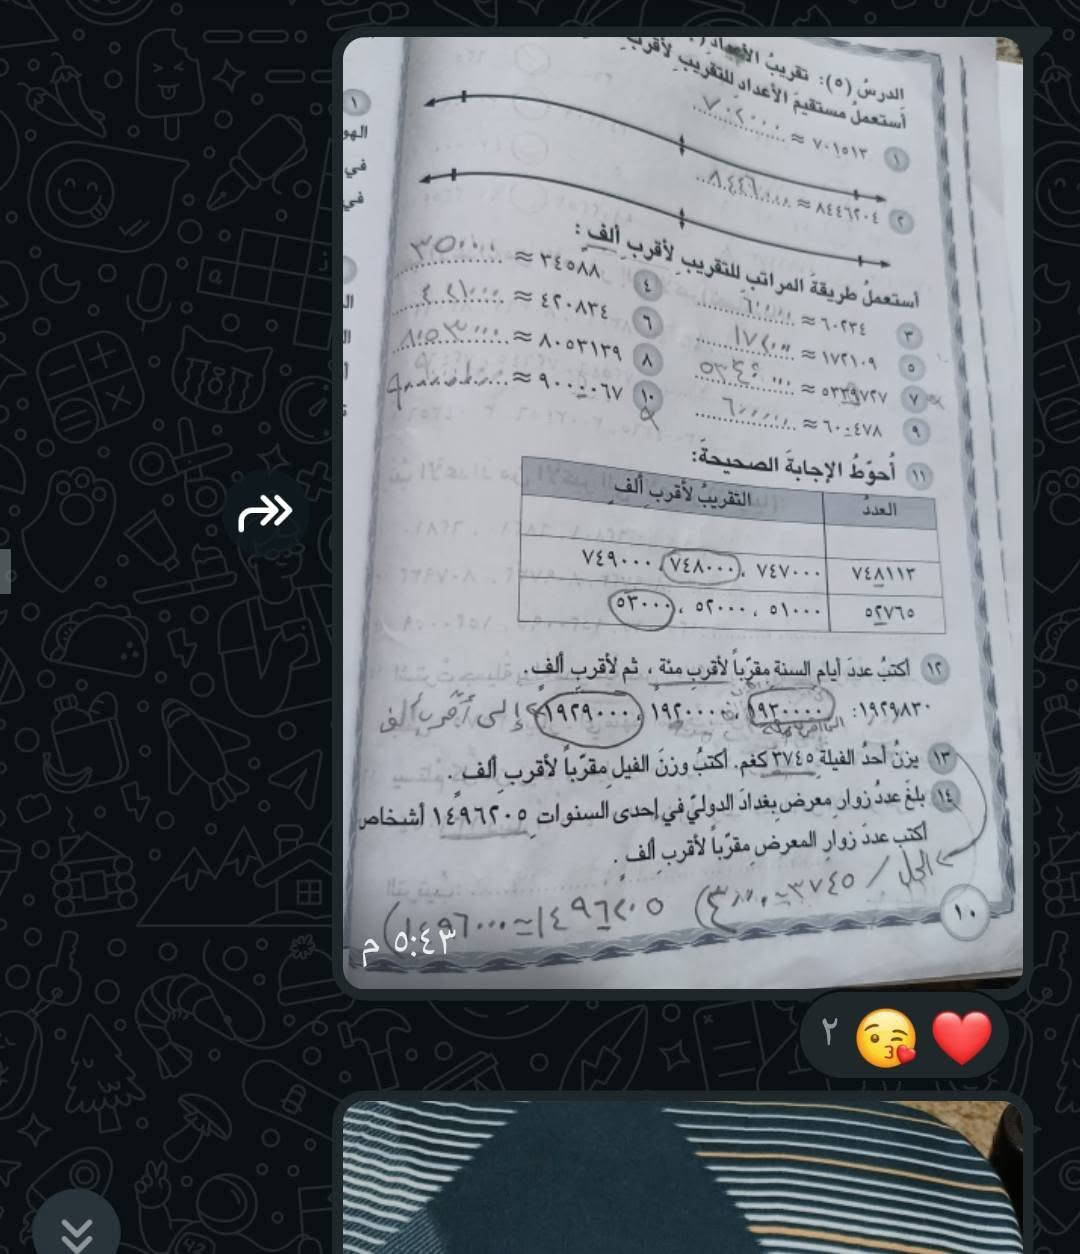 الدرسُ (٥): تقريبُ الأعدادِ
أستعملُ مستقيمَ الأعدادِ للتقريبِ لأقربِ
١ ٧٠١٥١٣ ≈ ٧٠٢٠٠٠
٢ ٨٤٤٦٢٠٤ ≈ ٨٤٤٦٠٠٠
أستعملُ طريقةَ المراتبِ للتقريبِ لأقربِ ألفٍ:
٣ ٦٠٢٣٤ ≈ ٦٠٠٠٠ ٤ ٣٤٥٨٨ ≈ ٣٥٠٠٠
٥ ١٧٢١٠٩ ≈ ١٧٢٠٠٠ ٦ ٤٢٠٨٣٤ ≈ ٤٢١٠٠٠
٧ ٥٣٣٩٧٢٧ ≈ ٥٣٤٠٠٠٠ ٨ ٨٠٥٣١٣٩ ≈ ٨٠٥٣٠٠٠
٩ ٦٠٠٤٧٨ ≈ ٦٠٠٠٠٠ ١٠ ٩٠٠٠٠٦٧ ≈ ٩٠٠٠٠٠٠
١١ أُحوّطُ الإجابةَ الصحيحةَ:
العددُ التقريبُ لأقربِ ألفٍ
٧٤٨١١٣ ٧٤٧٠٠٠ ، ٧٤٨٠٠٠ ، ٧٤٩٠٠٠
٥٢٧٦٥ ٥١٠٠٠ ، ٥٢٠٠٠ ، ٥٣٠٠٠
١٢ أكتبُ عددَ أيامِ السنة مقرّباً لأقربِ مئة ، ثم لأقربِ ألفٍ.
١٩٢٩٨٣٠: ١٩٣٠٠٠٠ ، ١٩٢٠٠٠٠ ، ١٩٢٩٠٠٠ إلى أقرب ألف
١٣ يزنُ أحدُ الفيلة ٣٧٤٥ كغم. أكتبُ وزنَ الفيلِ مقرّباً لأقربِ ألفٍ.
١٤ بلغَ عددُ زوارِ معرضِ بغدادَ الدوليّ في إحدى السنوات ١٤٩٦٢٠٥ أشخاص
أكتب عددَ زوارِ المعرضِ مقرّباً لأقربِ ألفٍ.
الحل / ٣٧٤٥ ≃ ٤٠٠٠
١٤٩٦٢٠٥ ≃ ١٤٩٦٠٠٠
١٠
٥:٤٣ م
٢
١
الهو
في
في